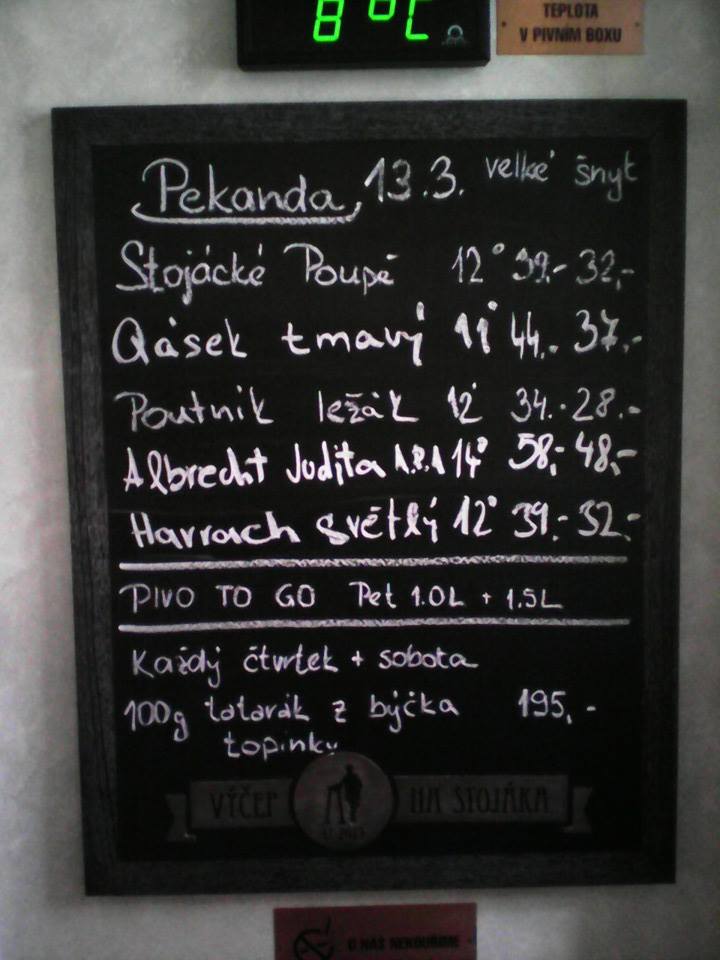 8°C
TEPLOTA
V PIVNÍM BOXU
Pekanda 13.3. velké šnyt
Stojácké Poupě 12° 39.- 32,-
Qásek tmavý 11° 44.- 37.-
Poutník ležák 12° 34.- 28.-
Albrecht Judita A.P.A 14° 58,- 48,-
Harrach světlý 12° 39.- 32.-
PIVO TO GO Pet 1.0L + 1.5L
Každý čtvrtek + sobota
100g tatarák z býčka 195,-
topinky
VÝČEP NA STOJÁKA
U NÁS NEKOUŘÍME